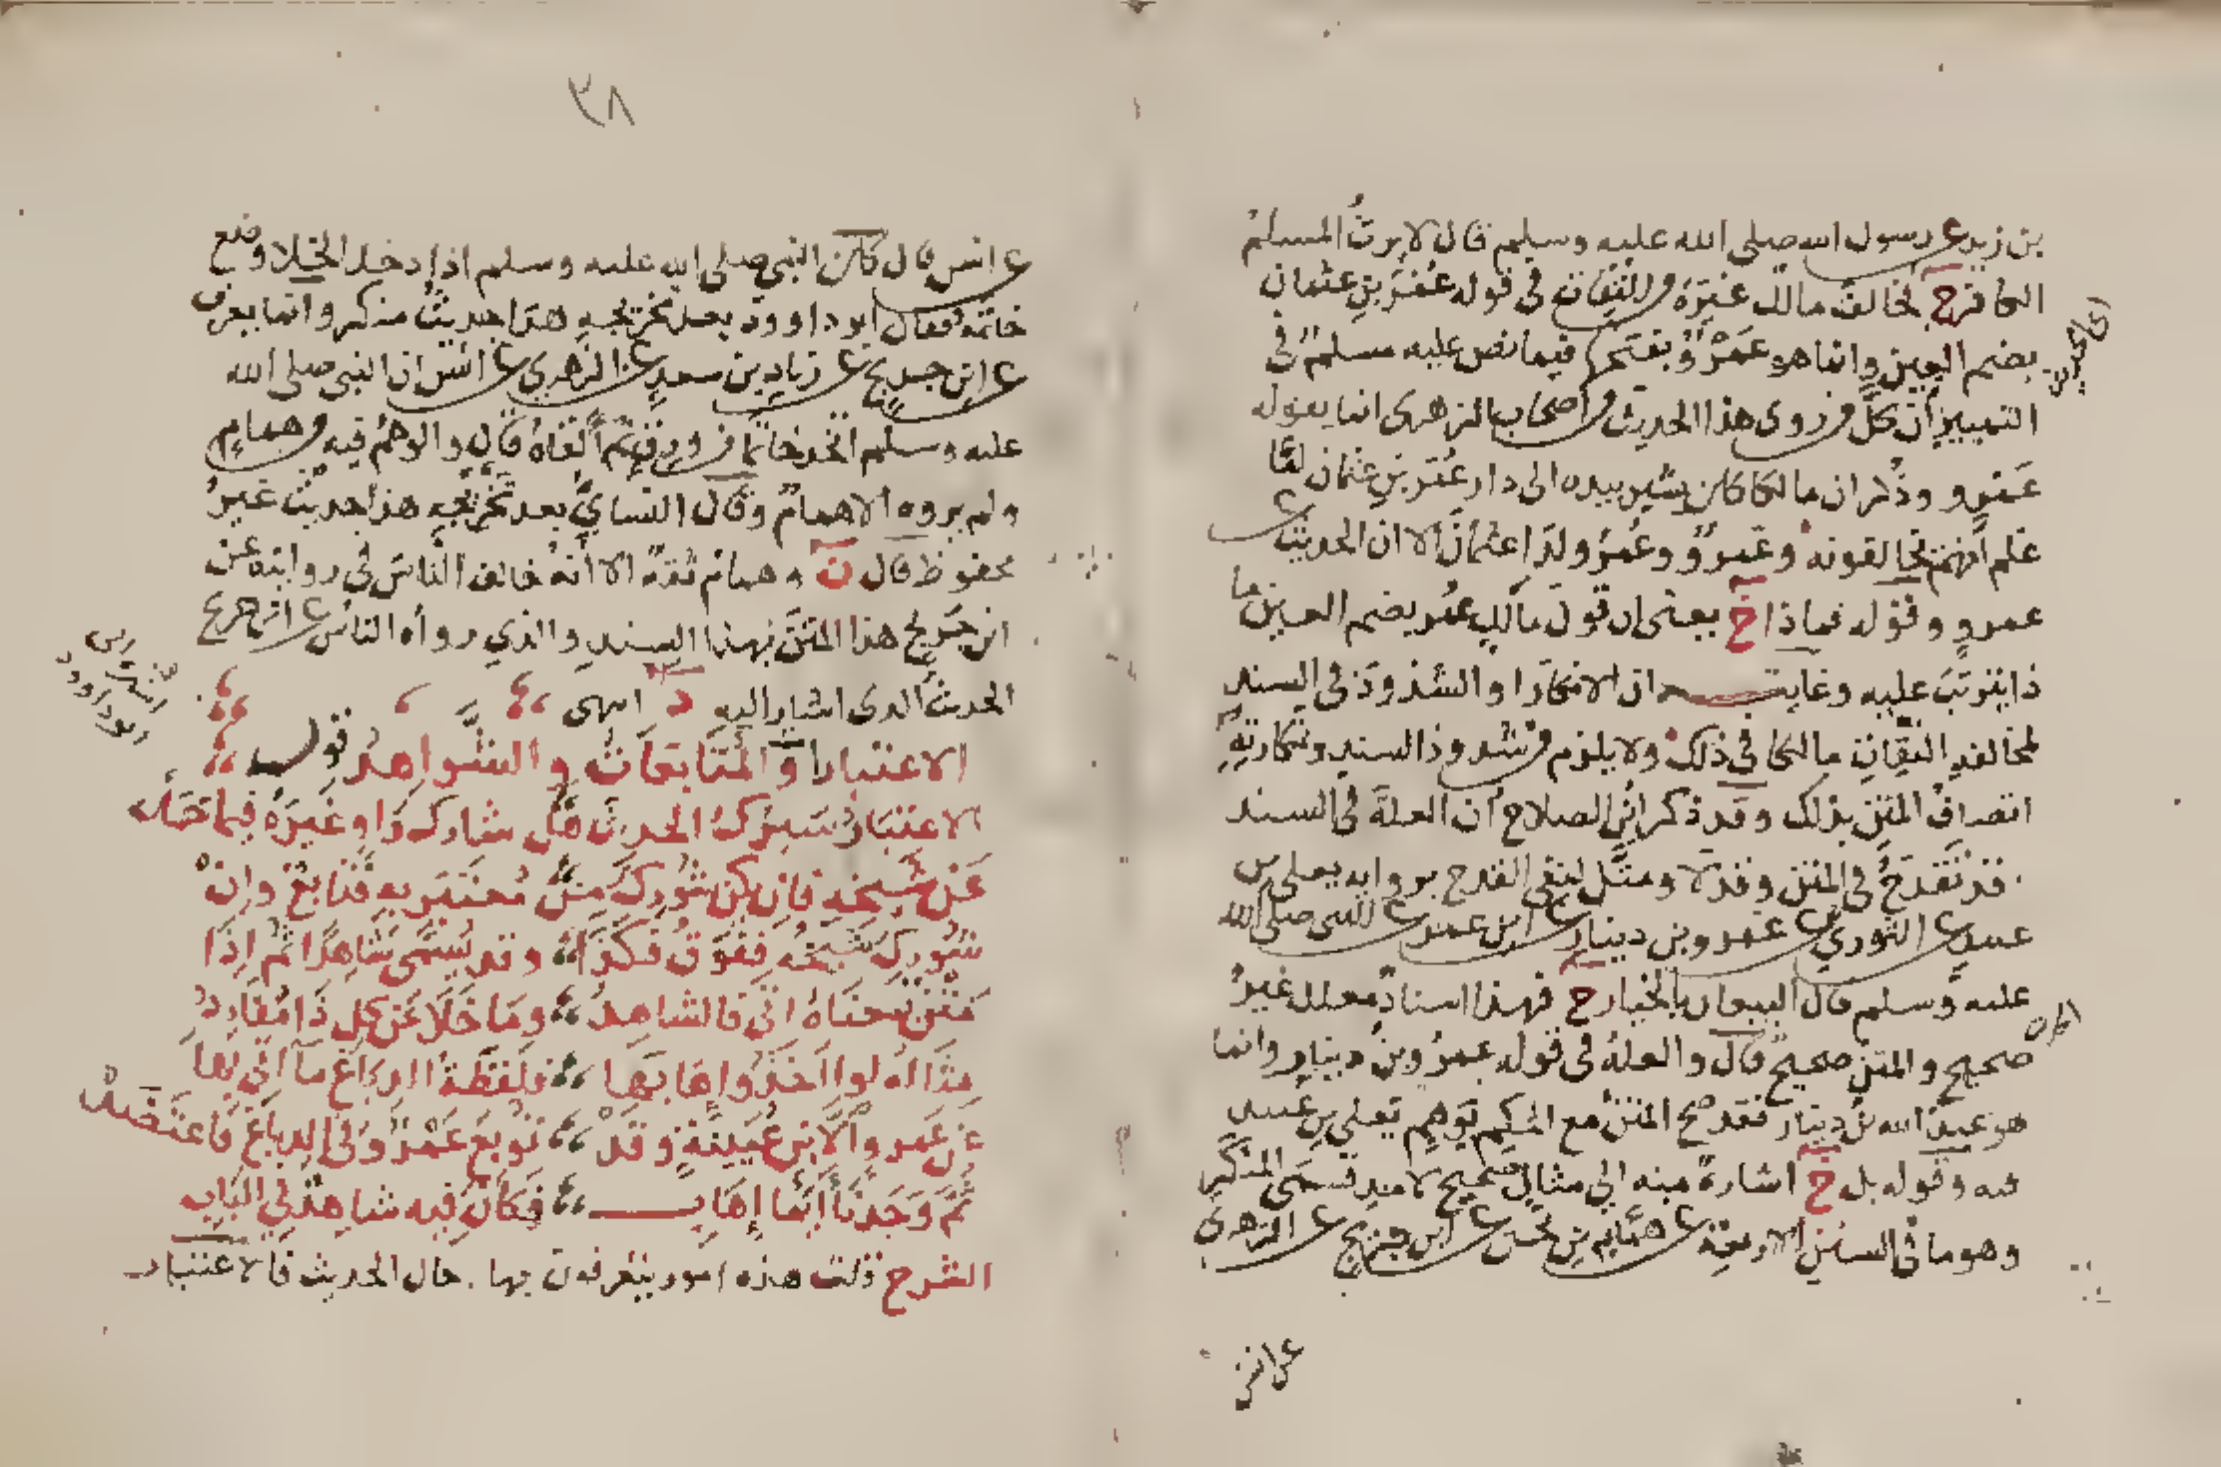 بن زيد عن رسول الله صلى الله عليه وسلم قال لا يرث المسلم
الكافر ح فخالف مالك غيره من الثقات في قوله عمر بن عثمان
بضم العين وانما هو عمرو بفتحها فيما نص عليه مسلم في
التمييز ان كل من روى هذا الحديث من اصحاب الزهرى انما يقوله
عمرو وذكر ان مالكا كان يشير بيده الى دار عمر بن عثمان لما
علم انهم يخالفونه وعمرو وعمر ولدا عثمان الا ان الحديث عن
عمرو وقوله فماذا خ يعنى ان قول مالك عمر بضم العين ما
ذا يترتب عليه وغايته ان الانكار او الشذوذ في السند
لمخالفه الثقات مالكا في ذلك ولا يلزم من شذوذ السند ونكارته
اتصاف المتن بذلك وقد ذكر ابن الصلاح ان العلة في السند
قد تقدح في المتن وقد لا ومثل لنفى القدح بروايه يعلى بن
عبيد عن الثوري عن عمرو بن دينار عن ابن عمر عن النبى صلى الله
عليه وسلم قال البيعان بالخيار ح فهذا اسناد معلل غير
صحيح والمتن صحيح قال والعلة في قوله عمرو بن دينار وانما
هو عبد الله بن دينار فقد صح المتن مع الحكم بوهم يعلي بن عبيد
فيه وقوله بل خ اشارة منه الي مثال صحيح لاحد قسمى المنكر
وهو ما في السنن الاربعة عن همام بن يحيى عن ابن جريج عن الزهرى
عن انس
٣٨
عن انس قال كان النبي صلى الله عليه وسلم اذا دخل الخلا وضع
خاتمه فقال ابو داوود بعد تخريجه هذا حديث منكر وانما يعرف
عن ابن جريج عن زياد بن سعد عن الزهري عن انس ان النبي صلى الله
عليه وسلم اتخذ خاتما من ورق ثم القاه قال والوهم فيه من همام
ولم يروه الا همام وقال النساي بعد تخريجه هذا حديث غير
محفوظ قال ن وهمام ثقة الا انه خالف الناس في روايته عن
ابن جريج هذا المتن بهذا السند والذي رواه الناس عن ابن جريج
الحديث الذى اشار اليه د انتهى
الاعتبار والمتابعات والشواهد قولــه
الاعتبار سبرك الحديث هل شارك راو غيره فيما حمله
عن شيخه فان يكن شورك من معتبر به فتابع وان
شورك شيخه ففوق فكذا وقد يسمى شاهدا ثم اذا
متن بمعناه اتى فالشاهد وما خلا عن كل ذا مفارد
مثاله لو اخذوا اهابها فلفظة الدباغ ما اتى بها
عن عمرو الا ابن عيينة وقد توبع عمرو في الدباغ فاعتضد
ثم وجدنا ايما اهاب فكان فيه شاهد في الباب
الشرح قلت هذه امور يتعرفون بها حال الحديث فالاعتبار